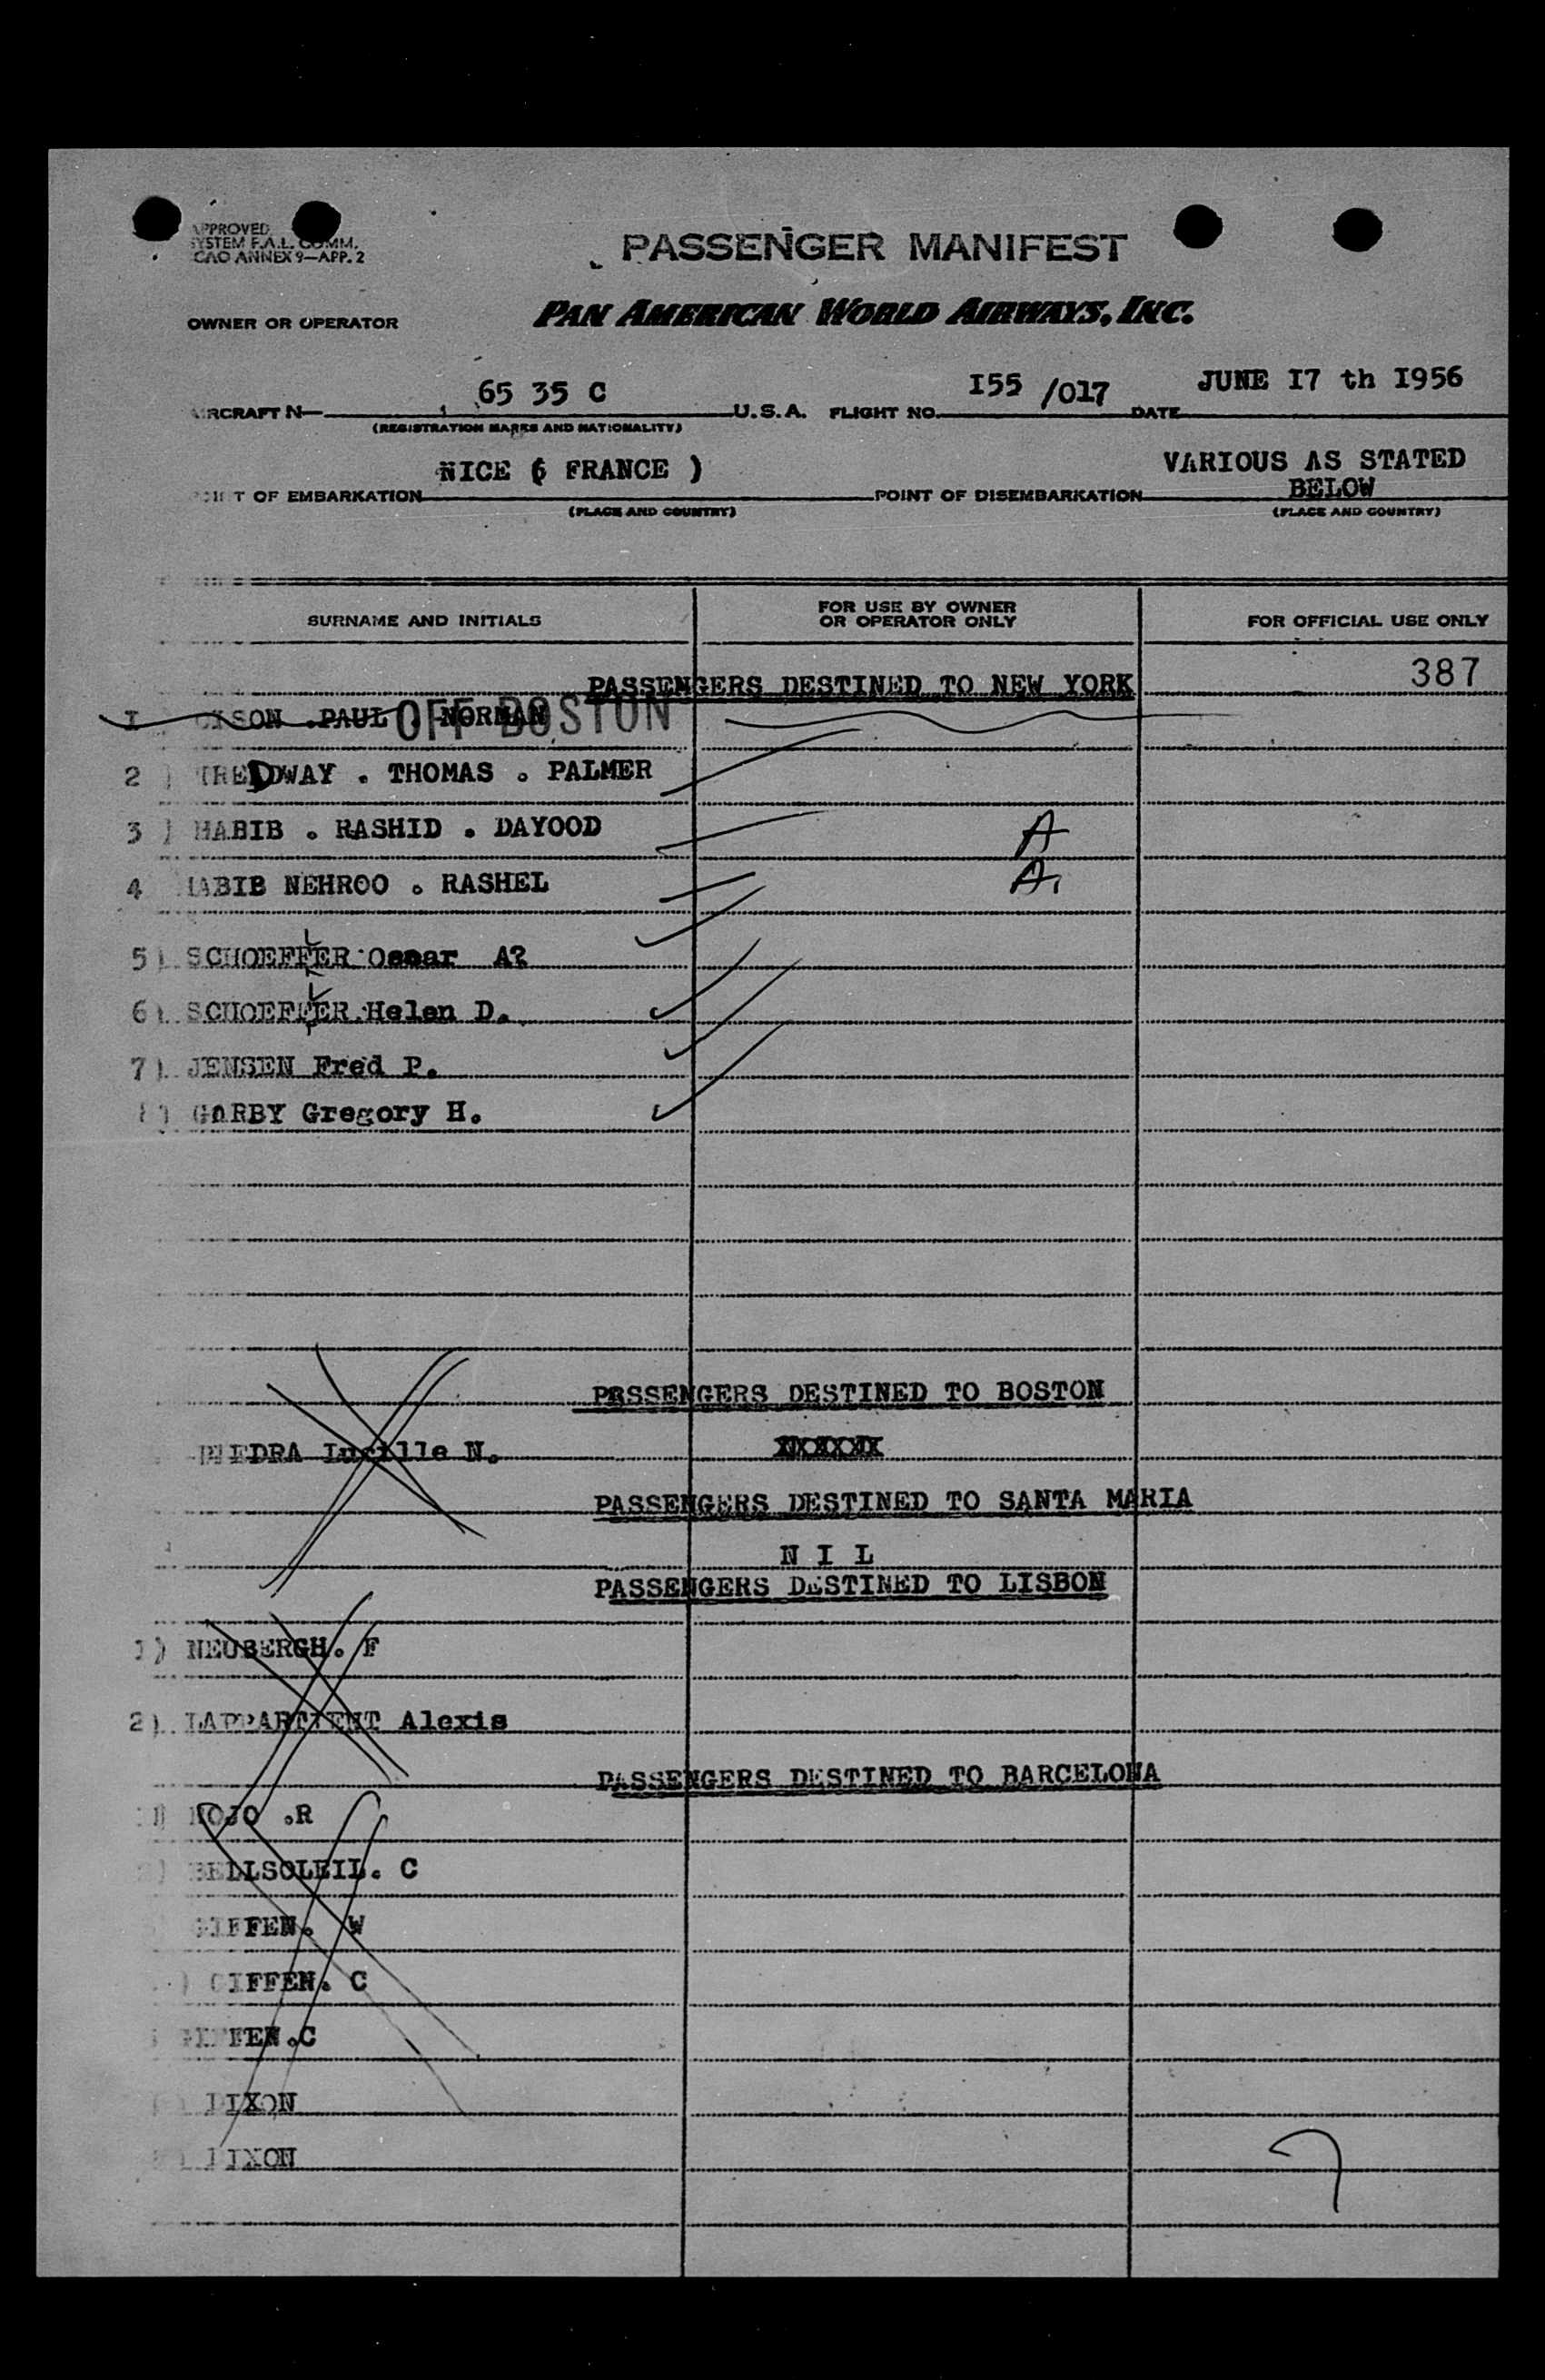 APPROVED
SYSTEM F.A.L. COMM.
ICAO ANNEX 9—APP. 2
PASSENGER MANIFEST
OWNER OR OPERATOR PAN AMERICAN WORLD AIRWAYS, INC.
AIRCRAFT N— 65 35 C U.S.A. FLIGHT NO. I55 /017 DATE JUNE I7 th I956
(REGISTRATION MARKS AND NATIONALITY)
POINT OF EMBARKATION NICE ( FRANCE ) POINT OF DISEMBARKATION VARIOUS AS STATED BELOW
(PLACE AND COUNTRY) (PLACE AND COUNTRY)
SURNAME AND INITIALS FOR USE BY OWNER OR OPERATOR ONLY FOR OFFICIAL USE ONLY
PASSENGERS DESTINED TO NEW YORK 387
I PAUL . NORMAN OFF BOSTON
2 ) TREDWAY . THOMAS . PALMER
3 ) HABIB . RASHID . DAYOOD A
4 HABIB NEHROO . RASHEL A
5) SCHOEFFER Oscar A?
6) SCHOEFFER Helen D.
7) JENSEN Fred P.
8) GARBY Gregory H.
PASSENGERS DESTINED TO BOSTON
PIEDRA Lucille N. XXXXXX
PASSENGERS DESTINED TO SANTA MARIA
N I L
PASSENGERS DESTINED TO LISBON
1) NEUBERGH. F
2) LAPPARTIENT Alexis
PASSENGERS DESTINED TO BARCELONA
.R
BELLSOLEIL. C
GIFFEN. W
) GIFFEN. C
GIFFEN .C
DIXON
DIXON